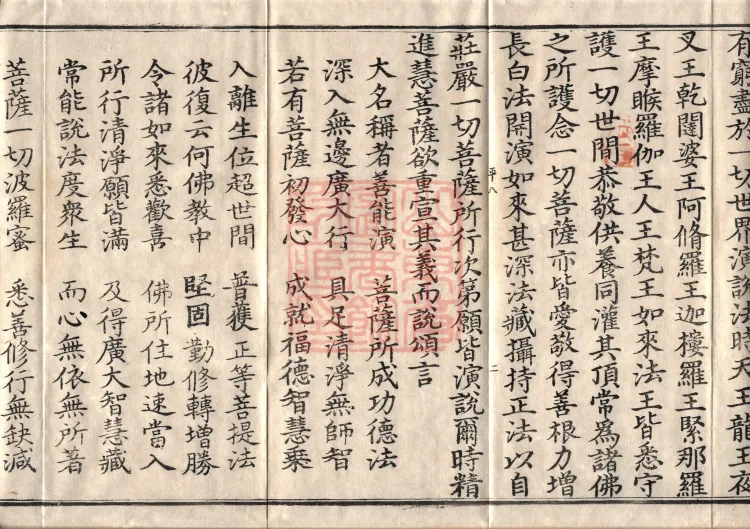 有窮盡於一切世界演說法時天王龍王夜
叉王乾闥婆王阿脩羅王迦樓羅王緊那羅
王摩睺羅伽王人王梵王如來法王皆悉守
護一切世間恭敬供養同灌其頂常為諸佛
之所護念一切菩薩亦皆愛敬得善根力增
長白法開演如來甚深法藏攝持正法以自
莊嚴一切菩薩所行次第願皆演說爾時精
平八
二
進慧菩薩欲重宣其義而說頌言
大名稱者善能演 菩薩所成功德法
深入無邊廣大行 具足清淨無師智
若有菩薩初發心 成就福德智慧乘
入離生位超世間 普獲正等菩提法
彼復云何佛教中 堅固勤修轉增勝
令諸如來悉歡喜 佛所住地速當入
所行清淨願皆滿 及得廣大智慧藏
常能說法度衆生 而心無依無所著
菩薩一切波羅蜜 悉善修行無缺減